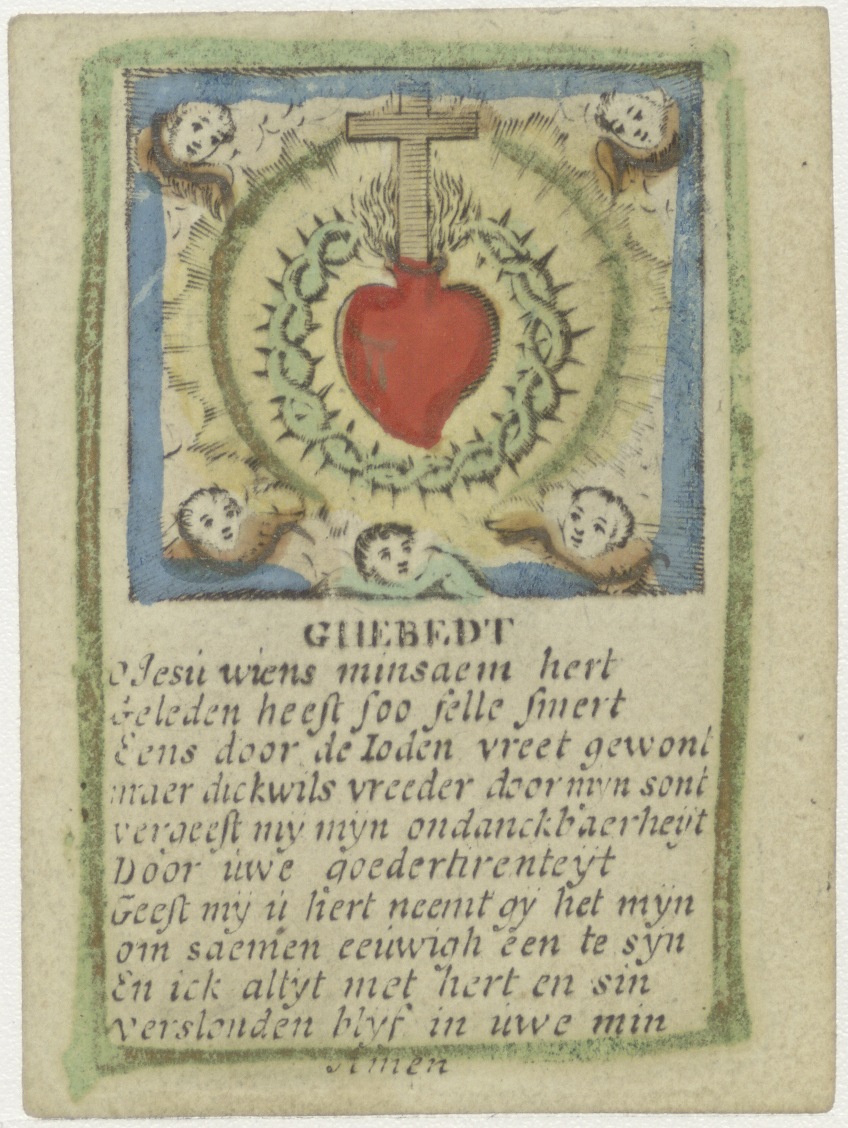 GHEBEDT
O Jesu wiens minsaem hert
Geleden heeft soo felle smert
Eens door de Ioden vreet gewont
maer dickwils vreeder door myn sont
vergeeft my mÿn ondanckbaerheÿt
Door uwe goedertirenteÿt
Geeft mÿ u hert neemt gÿ het mÿn
om saemen eeuwigh een te sÿn
En ick altÿt met hert en sin
verslonden blÿf in uwe min
Amen